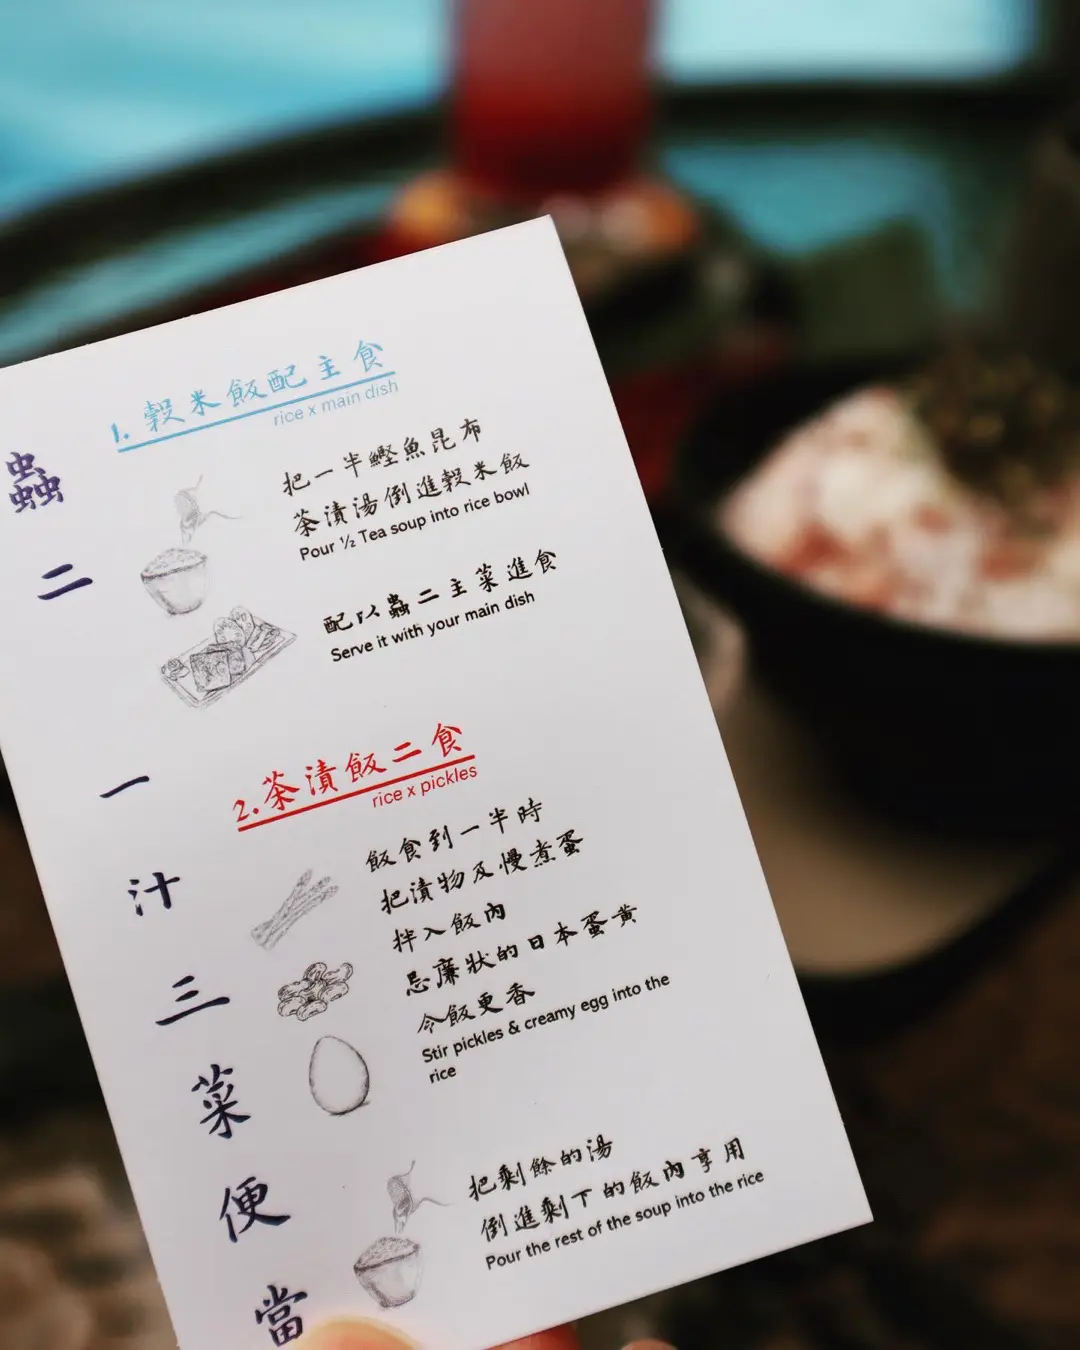 蟲二 一汁三菜便當
1. 穀米飯配主食
rice x main dish
把一半鰹魚昆布
茶漬湯倒進穀米飯
Pour ½ Tea soup into rice bowl
配以蟲二主菜進食
Serve it with your main dish
2.茶漬飯二食
rice x pickles
飯食到一半時
把漬物及慢煮蛋
拌入飯內
忌廉狀的日本蛋黃
令飯更香
Stir pickles & creamy egg into the
rice
把剩餘的湯
倒進剩下的飯內享用
Pour the rest of the soup into the rice